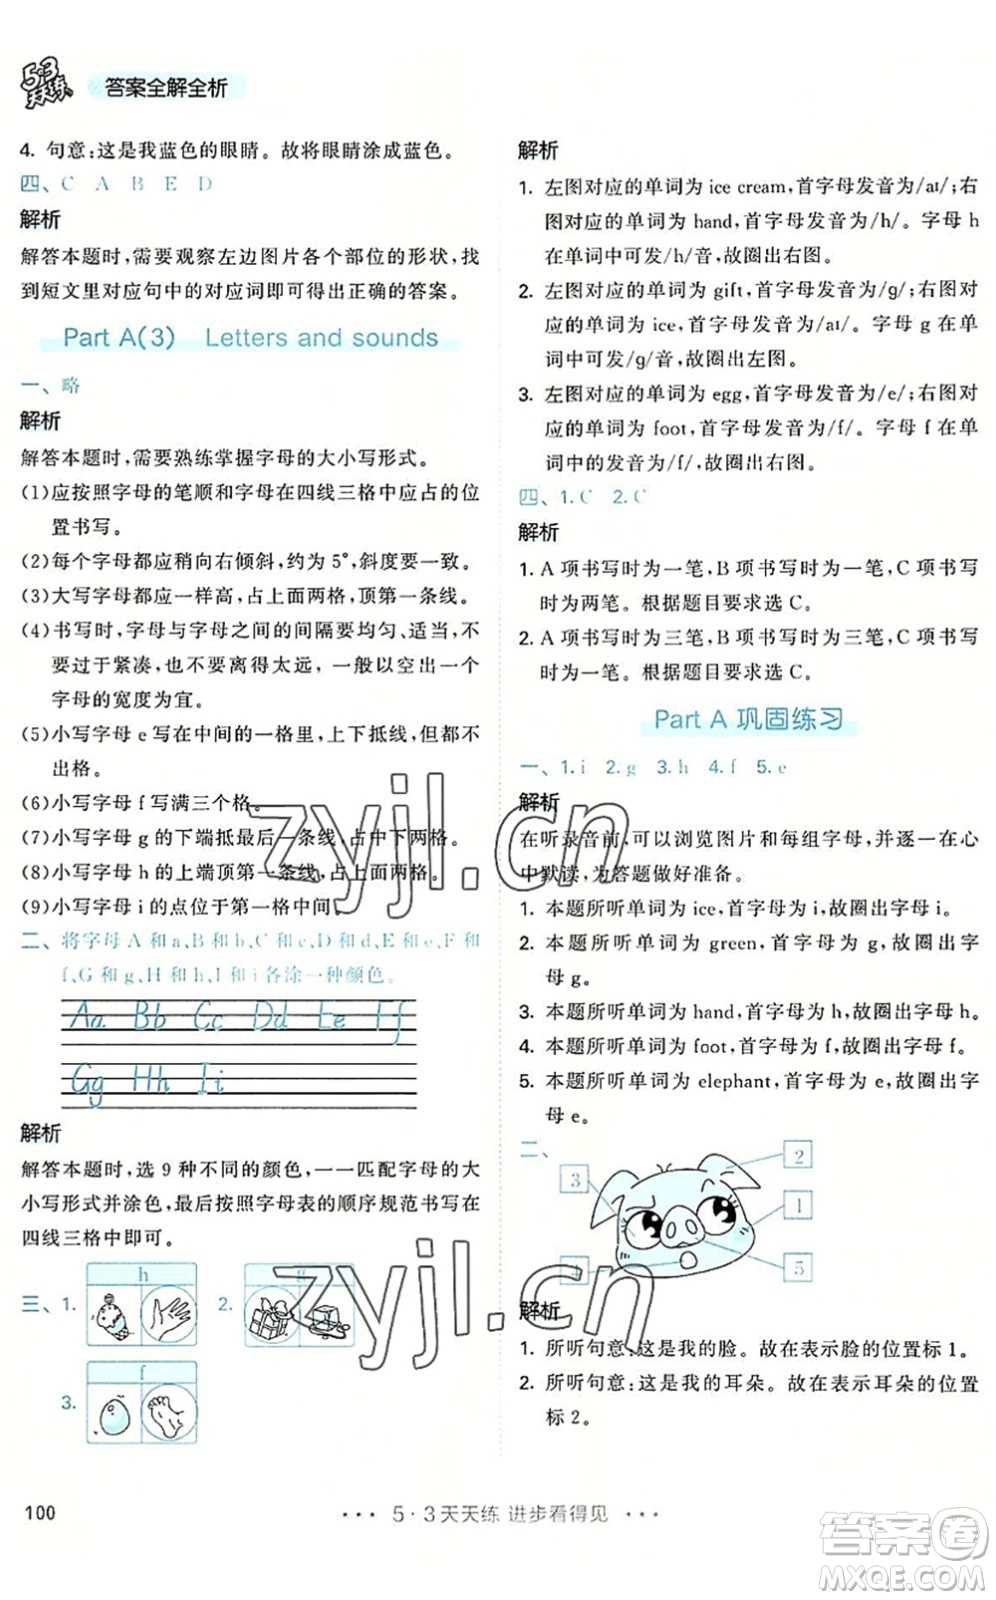 5·3
天天练
答案全解全析
4. 句意:这是我蓝色的眼睛。故将眼睛涂成蓝色。
四、C A B E D
解析
解答本题时,需要观察左边图片各个部位的形状,找
到短文里对应句中的对应词即可得出正确的答案。
Part A(3) Letters and sounds
一、略
解析
解答本题时,需要熟练掌握字母的大小写形式。
(1)应按照字母的笔顺和字母在四线三格中应占的位
置书写。
(2)每个字母都应稍向右倾斜,约为 5°,斜度要一致。
(3)大写字母都应一样高,占上面两格,顶第一条线。
(4)书写时,字母与字母之间的间隔要均匀、适当,不
要过于紧凑,也不要离得太远,一般以空出一个
字母的宽度为宜。
(5)小写字母 e 写在中间的一格里,上下抵线,但都不
出格。
(6)小写字母 f 写满三个格。
(7)小写字母 g 的下端抵最后一条线,占中下两格。
(8)小写字母 h 的上端顶第一条线,占上面两格。
(9)小写字母 i 的点位于第一格中间。
二、将字母 A 和 a、B 和 b、C 和 c、D 和 d、E 和 e、F 和
f、G 和 g、H 和 h、I 和 i 各涂一种颜色。
Aa Bb Cc Dd Ee Ff
Gg Hh Ii
解析
解答本题时,选 9 种不同的颜色,一一匹配字母的大
小写形式并涂色,最后按照字母表的顺序规范书写在
四线三格中即可。
三、1. h 2. g
3. f
解析
1. 左图对应的单词为 ice cream,首字母发音为/aɪ/;右
图对应的单词为 hand,首字母发音为/h/。字母 h
在单词中可发/h/音,故圈出右图。
2. 左图对应的单词为 gift,首字母发音为/g/;右图对
应的单词为 ice,首字母发音为/aɪ/。字母 g 在单
词中可发/g/音,故圈出左图。
3. 左图对应的单词为 egg,首字母发音为/e/;右图对
应的单词为 foot,首字母发音为/f/。字母 f 在单
词中可发/f/音,故圈出右图。
四、1. C 2. C
解析
1. A 项书写时为一笔,B 项书写时为一笔,C 项书写
时为两笔。根据题目要求选 C。
2. A 项书写时为三笔,B 项书写时为三笔,C 项书写
时为一笔。根据题目要求选 C。
Part A 巩固练习
一、1. i 2. g 3. h 4. f 5. e
解析
在听录音前,可以浏览图片和每组字母,并逐一在心
中默读,为答题做好准备。
1. 本题所听单词为 ice,首字母为 i,故圈出字母 i。
2. 本题所听单词为 green,首字母为 g,故圈出字
母 g。
3. 本题所听单词为 hand,首字母为 h,故圈出字母 h。
4. 本题所听单词为 foot,首字母为 f,故圈出字母 f。
5. 本题所听单词为 elephant,首字母为 e,故圈出字
母 e。
二、
2
3
1
4
5
解析
1. 所听句意:这是我的脸。故在表示脸的位置标 1。
2. 所听句意:这是我的耳朵。故在表示耳朵的位置
标 2。
100
··· 5·3天天练 进步看得见 ···
zyjl.cn
zyjl.cn
答案圈
MXQE.COM